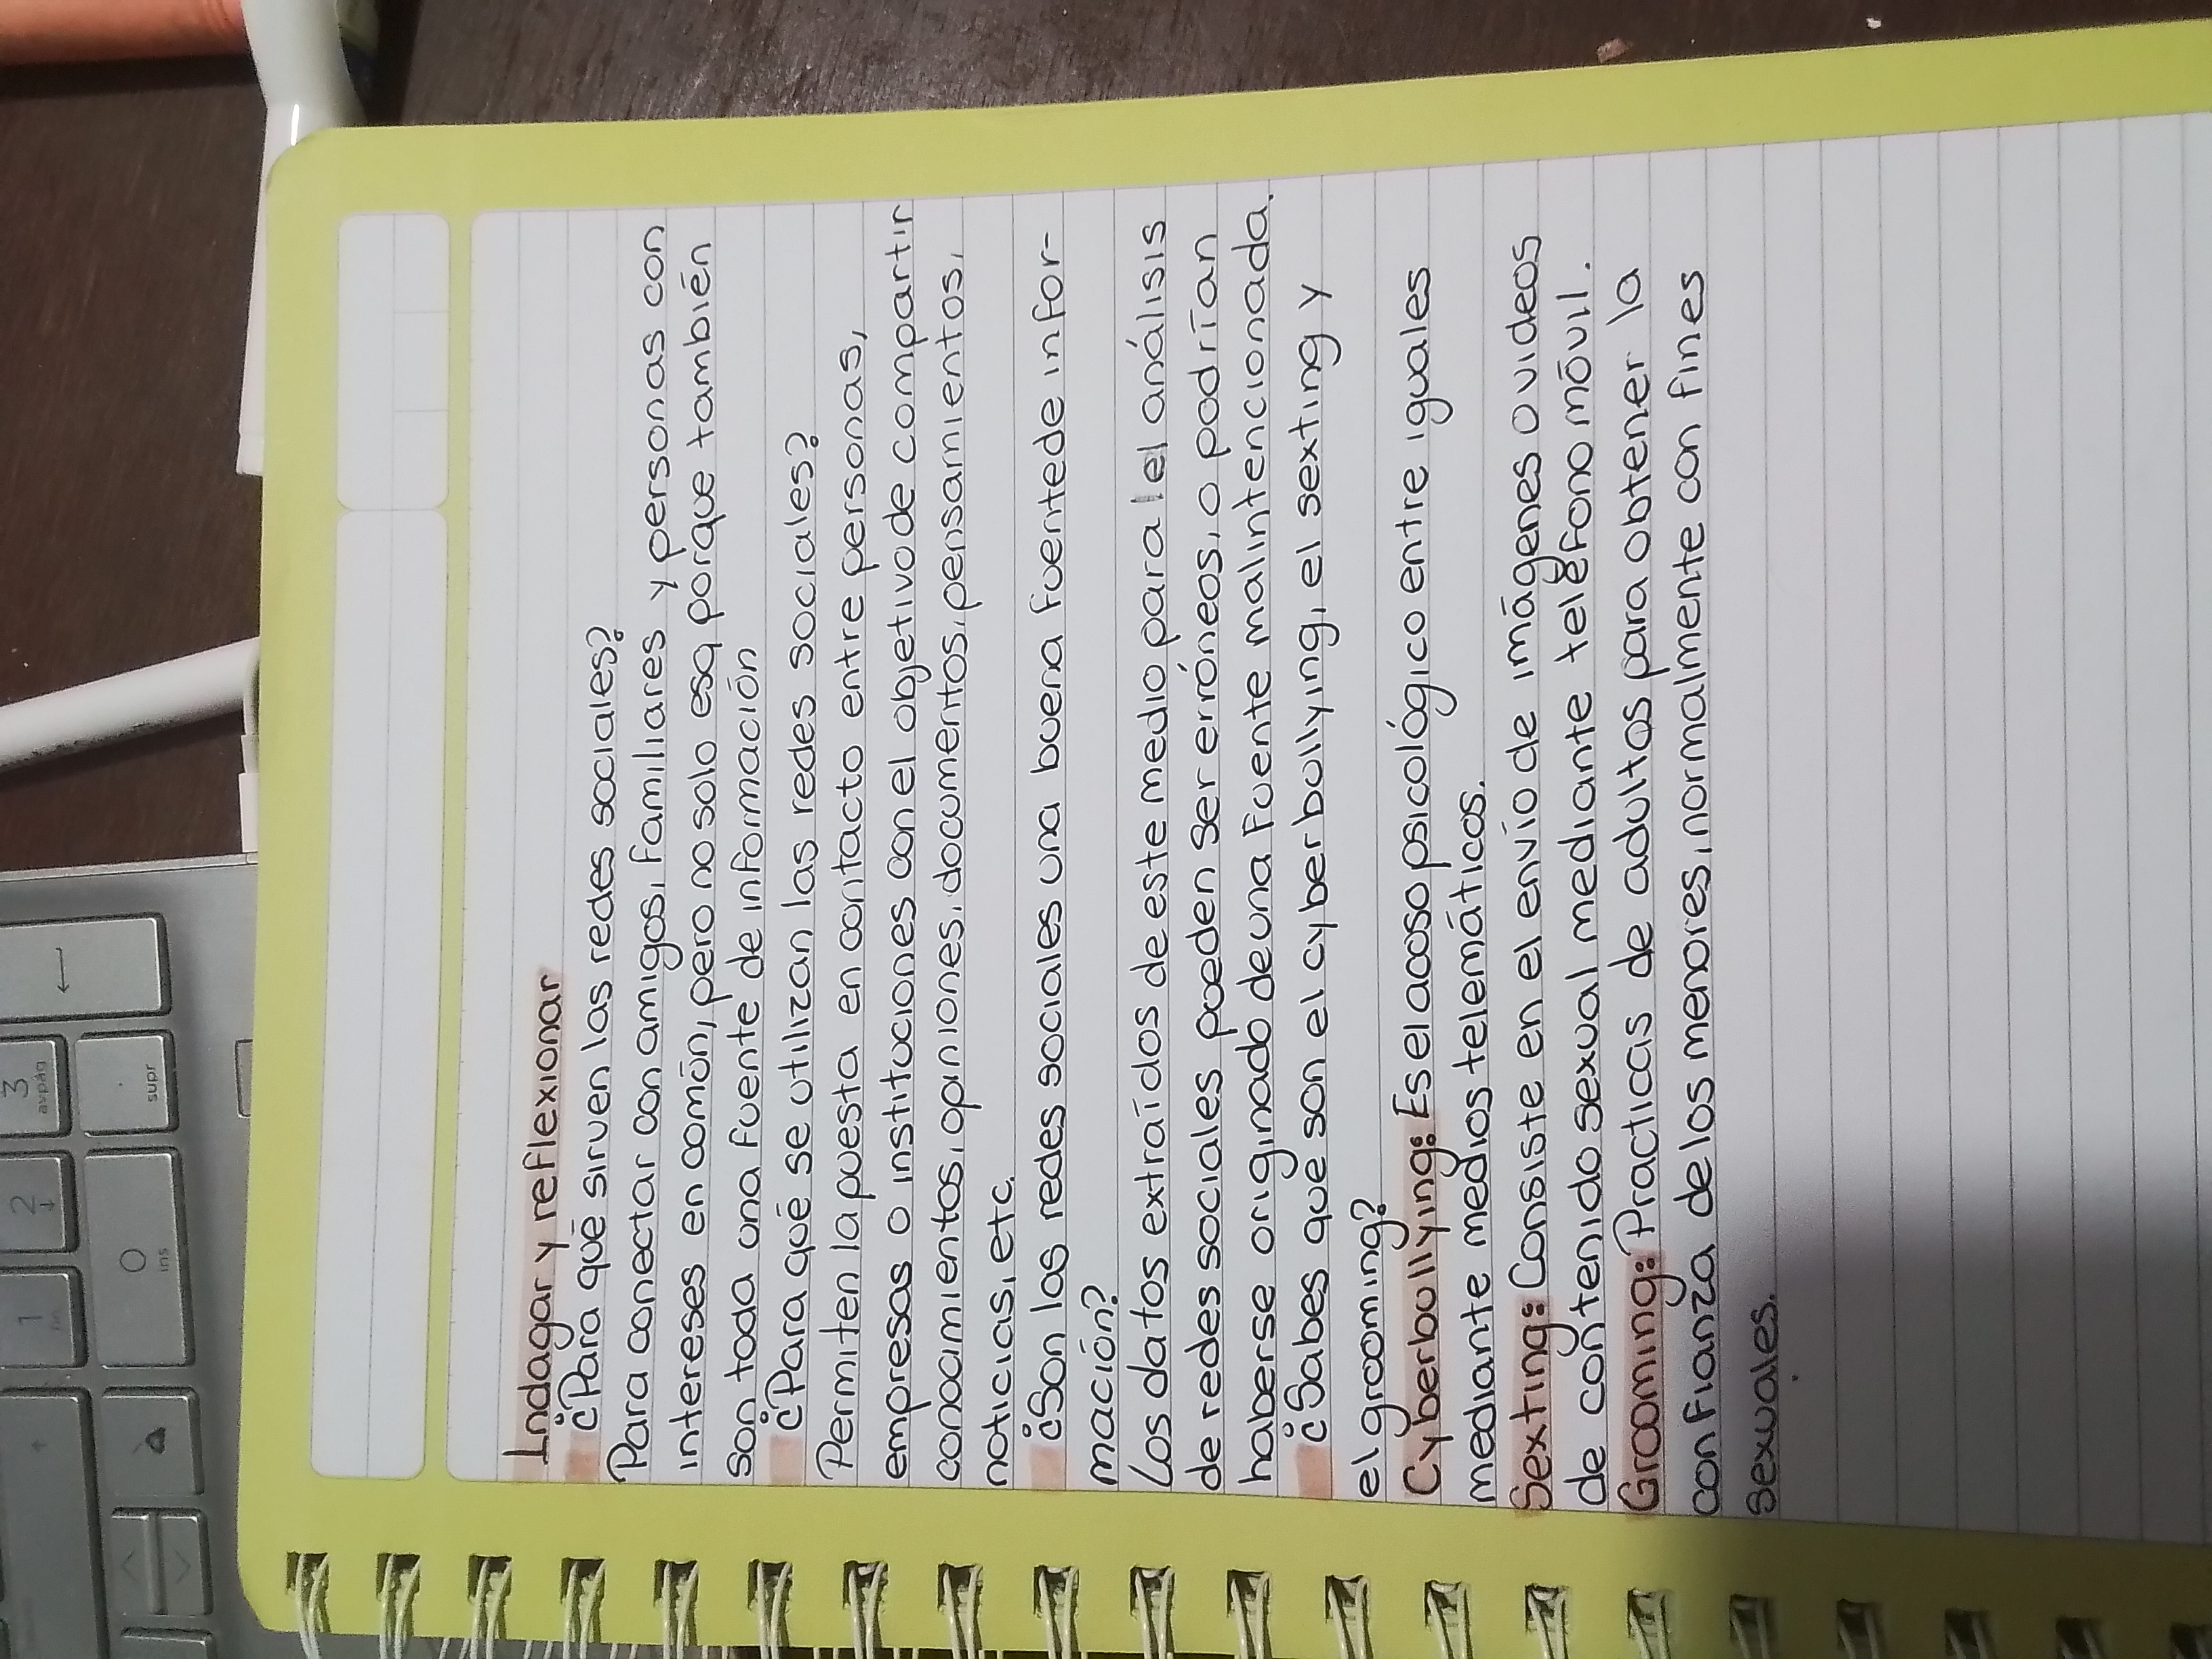 Indagar y reflexionar
¿Para qué sirven las redes sociales?
Para conectar con amigos, familiares y personas con
intereses en común, pero no solo eso porque también
son toda una fuente de información
¿Para qué se utilizan las redes sociales?
Permiten la puesta en contacto entre personas,
empresas o instituciones con el objetivo de compartir
conocimientos, opiniones, documentos, pensamientos,
noticias, etc.
¿Son las redes sociales una buena fuente de infor-
mación?
Los datos extraídos de este medio para el análisis
de redes sociales pueden ser erróneos, o podrían
haberse originado de una fuente malintencionada.
¿Sabes que son el cyberbullying, el sexting y
el grooming?
Cyberbullying: Es el acoso psicológico entre iguales
mediante medios telemáticos.
Sexting: Consiste en el envío de imágenes o videos
de contenido sexual mediante teléfono móvil.
Grooming: Practicas de adultos para obtener la
confianza de los menores, normalmente con fines
sexuales.
3
avpág
supr
2
1
fin
0
ins